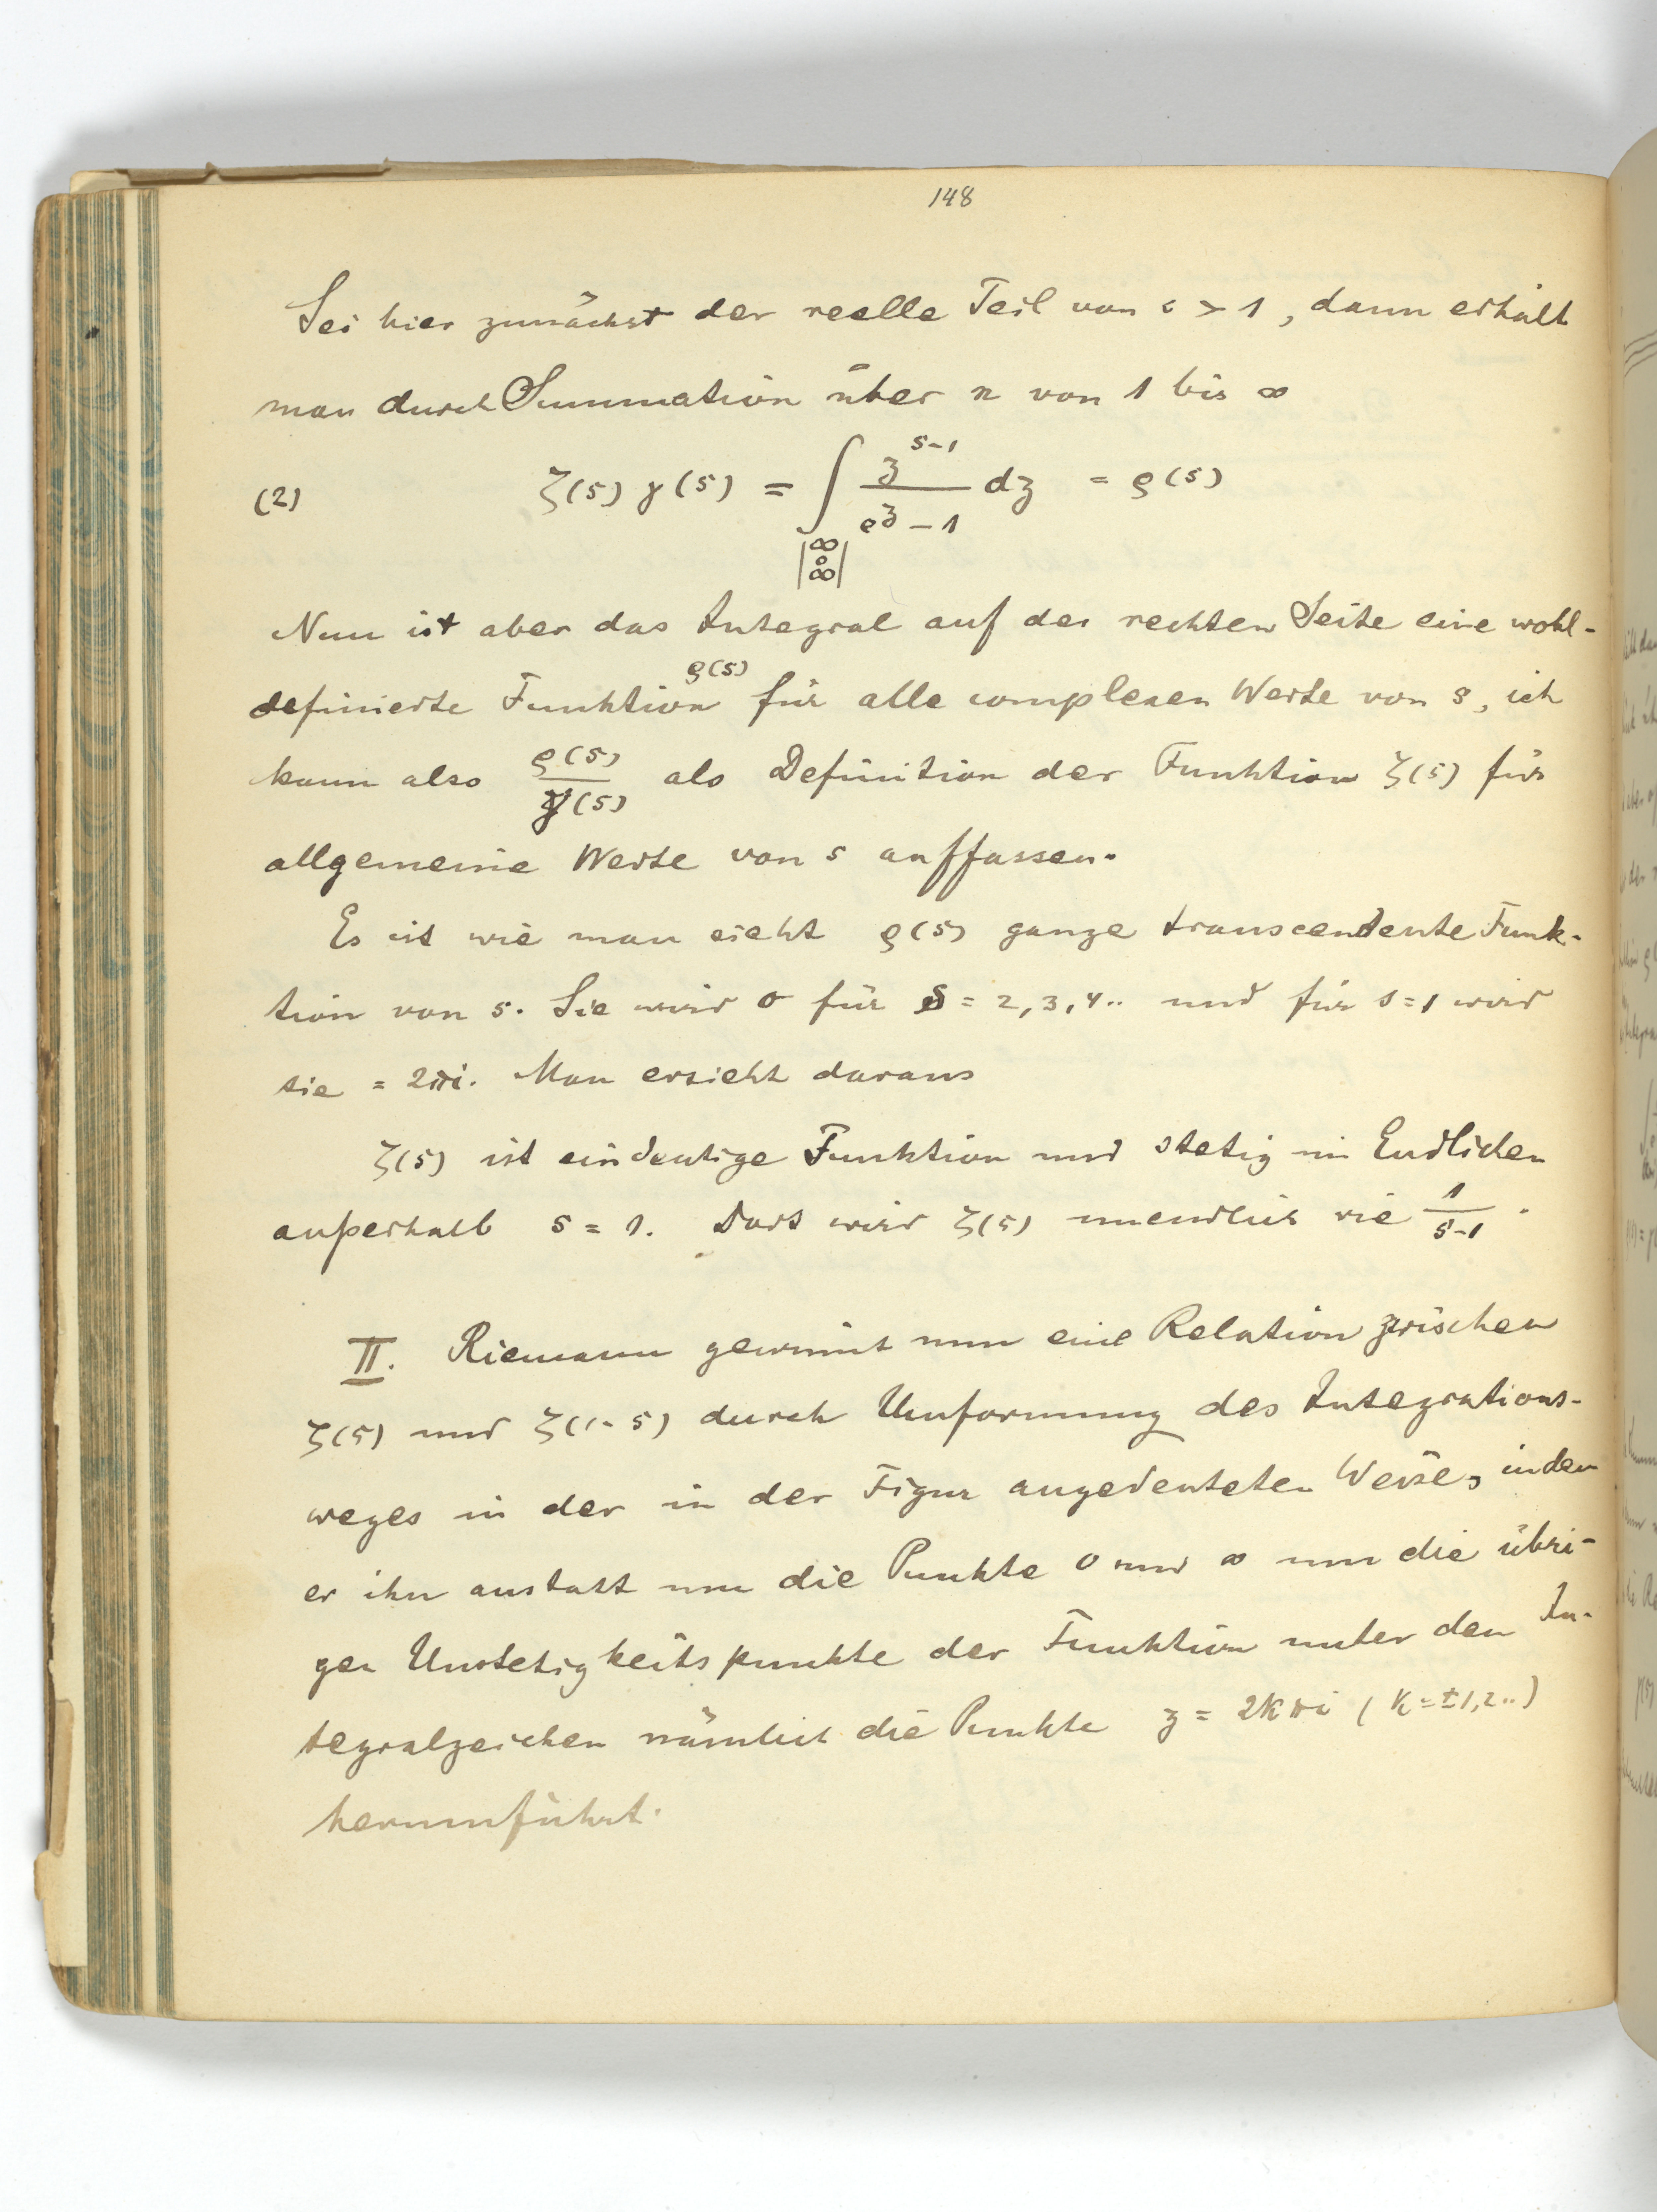 148
Sei hier zunächst der reelle Teil von s > 1, dann erhält
man durch Summation über n von 1 bis ∞
(2) ζ(s) γ(s) = ∫_{|∞ 0 ∞|} z^{s-1} / (e^z - 1) dz = ϱ(s)
Nun ist aber das Integral auf der rechten Seite eine wohl-
definierte Funktion ϱ(s) für alle complexen Werte von s, ich
kann also ϱ(s)/γ(s) als Definition der Funktion ζ(s) für
allgemeine Werte von s auffassen.
Es ist wie man sieht ϱ(s) ganze transcendente Funk-
tion von s. Sie wird 0 für s = 2, 3, 4.. und für s = 1 wird
sie = 2πi. Man ersieht daraus
ζ(s) ist eindeutige Funktion und stetig im Endlichen
außerhalb s = 1. Dort wird ζ(s) unendlich wie 1/(s-1).
II. Riemann gewinnt nun eine Relation zwischen
ζ(s) und ζ(1-s) durch Umformung des Integrations-
weges in der in der Figur angedeuteten Weise, indem
er ihn anstatt um die Punkte 0 und ∞ um die übri-
gen Unstetigkeitspunkte der Funktion unter dem In-
tegralzeichen nämlich die Punkte z = 2kπi (k = ±1, 2..)
herumführt.